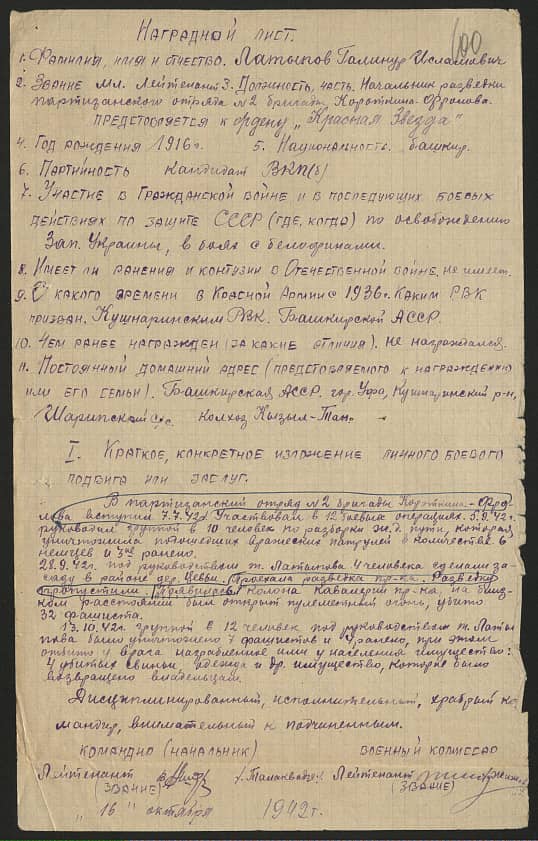 100
НАГРАДНОЙ ЛИСТ.
1. ФАМИЛИЯ, ИМЯ И ОТЧЕСТВО. Латыпов Галинур Исламович
2. ЗВАНИЕ Мл. Лейтенант 3. ДОЛЖНОСТЬ, ЧАСТЬ. Начальник разведки
партизанского отряда №2 бригады Короткина-Фролова.
ПРЕДСТАВЛЯЕТСЯ к ордену „Красная Звезда"
4. ГОД РОЖДЕНИЯ 1916г. 5. НАЦИОНАЛЬНОСТЬ. башкир.
6. ПАРТИЙНОСТЬ Кандидат ВКП(б)
7. УЧАСТИЕ В ГРАЖДАНСКОЙ ВОЙНЕ И В ПОСЛЕДУЮЩИХ БОЕВЫХ
ДЕЙСТВИЯХ ПО ЗАЩИТЕ СССР (ГДЕ, КОГДА) по освобождению
Зап. Украины, в боях с белофинами.
8. ИМЕЕТ ЛИ РАНЕНИЯ И КОНТУЗИИ В ОТЕЧЕСТВЕННОЙ ВОЙНЕ. не имеет.
9. С КАКОГО ВРЕМЕНИ В КРАСНОЙ АРМИИ С 1936г. КАКИМ РВК
ПРИЗВАН. Кушнаринским РВК. Башкирской АССР.
10. ЧЕМ РАНЕЕ НАГРАЖДЕН (ЗА КАКИЕ ОТЛИЧИЯ). Не награждался.
11. ПОСТОЯННЫЙ ДОМАШНИЙ АДРЕС (ПРЕДСТАВЛЯЕМОГО К НАГРАЖДЕНИЮ
ИЛИ ЕГО СЕМЬИ). Башкирская АССР. гор. Уфа, Кушнаринский р-н,
Шарипский с/с. колхоз Кызыл-Тан.
I. КРАТКОЕ, КОНКРЕТНОЕ ИЗЛОЖЕНИЕ ЛИЧНОГО БОЕВОГО
ПОДВИГА ИЛИ ЗАСЛУГ.
В партизанский отряд №2 бригады Короткина-Фро-
лова вступил 7.7.42г. Участвовал в 12 боевых операциях. 5.9.42г.
руководил группой в 10 человек по разборки ж.д. пути, которая
уничтожила подошедших вражеских патрулей в количестве 6
немцев и 3ое ранено.
28.9.42г. под руководством т. Латыпова 4 человека сделали за-
саду в районе дер. Цевьи. Проехала разведка пр-ка. Разведку
пропустили. Появилась колона кавалерии пр-ка, на близ-
ком расстоянии был открыт пулеметный огонь, убито
32 фашиста.
13.10.42г. группой в 12 человек под руководством т. Латы-
пова было уничтожено 7 фашистов и 4 ранено, при этом
отбито у врага награбленное ими у населения имущество:
4 убитых свиньи, одежда и др. имущество, которые было
возвращено владельцам.
Дисциплинированный, исполнительный, храбрый ко-
мандир, внимательный к подчиненным.
КОМАНДИР (НАЧАЛЬНИК) ВОЕННЫЙ КОМИССАР
Лейтенант Лейтенант
(ЗВАНИЕ) (ЗВАНИЕ)
„16" октября 1942г.